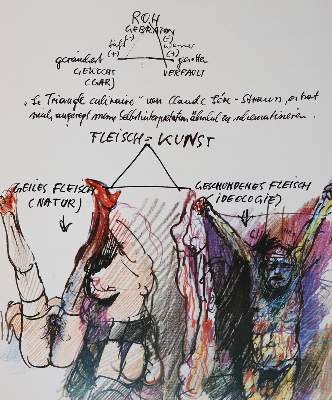 ROH
GEBRATEN
Luft Wasser
(-) (-)
(+) (+)
geräuchert gesotten
GEKOCHT VERFAULT
(GAR)
„Le Triangle culinaire" von Claude Lévi-Strauss, er hat
mich angeregt meine Selbstinterpretation ähnlich zu schematisieren.
FLEISCH = KUNST
GEILES FLEISCH GESCHUNDENES FLEISCH
(NATUR) (IDEOLOGIE)